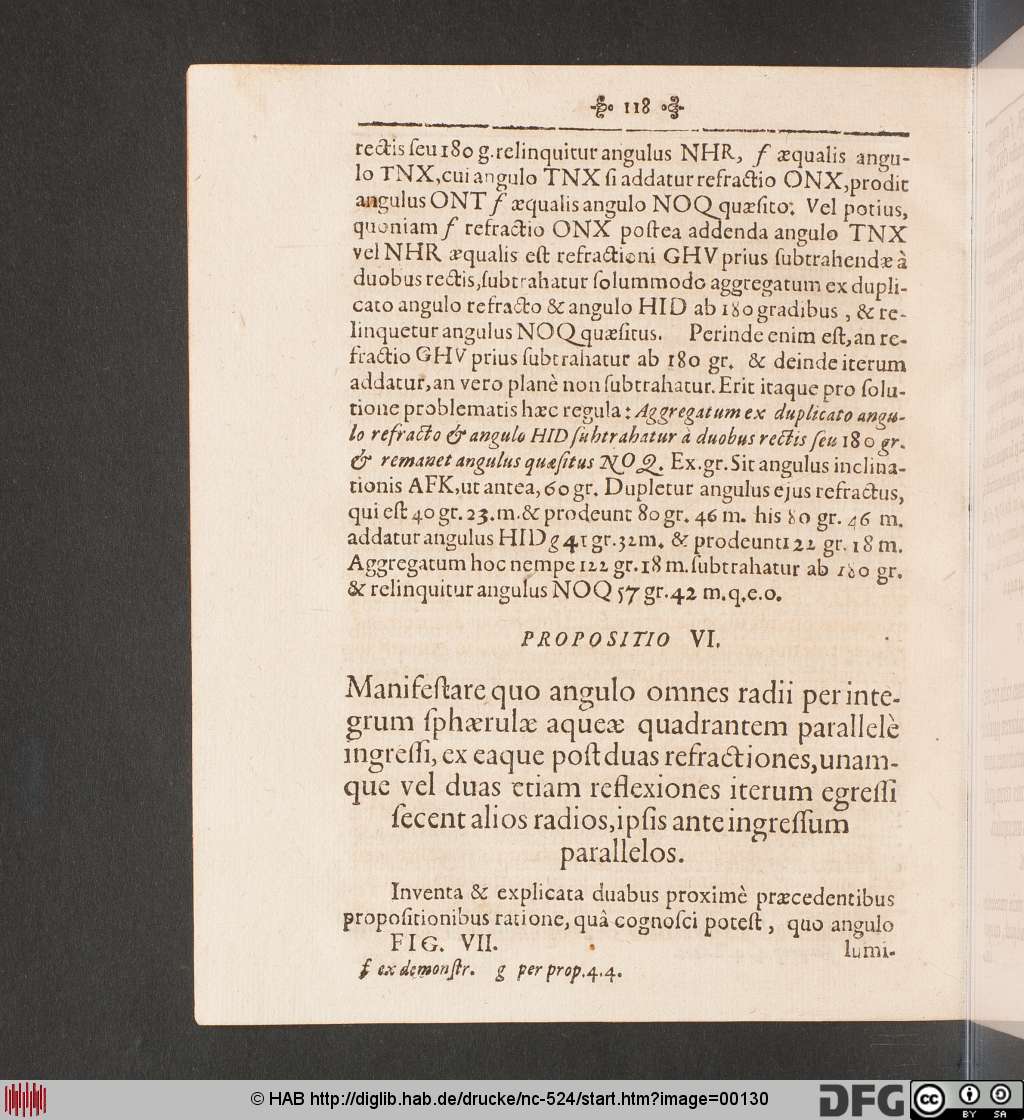 118
rectis ſeu 180 g. relinquitur angulus NHR, f æqualis angu-
lo TNX, cui angulo TNX ſi addatur refractio ONX, prodit
angulus ONT f æqualis angulo NOQ quæſito: Vel potius,
quoniam f refractio ONX poſtea addenda angulo TNX
vel NHR æqualis eſt refractioni GHV prius ſubtrahendæ à
duobus rectis, ſubtrahatur ſolummodo aggregatum ex dupli-
cato angulo refracto & angulo HID ab 180 gradibus, & re-
linquetur angulus NOQ quæſitus. Perinde enim eſt, an re-
fractio GHV prius ſubtrahatur ab 180 gr. & deinde iterum
addatur, an vero planè non ſubtrahatur. Erit itaque pro ſolu-
tione problematis hæc regula: Aggregatum ex duplicato angu-
lo refracto & angulo HID ſubtrahatur à duobus rectis ſeu 180 gr.
& remanet angulus quæſitus NOQ. Ex. gr. Sit angulus inclina-
tionis AFK, ut antea, 60 gr. Dupletur angulus ejus refractus,
qui eſt 40 gr. 23. m. & prodeunt 80 gr. 46 m. his 80 gr. 46 m.
addatur angulus HID g 41 gr. 32 m. & prodeunt 122 gr. 18 m.
Aggregatum hoc nempe 122 gr. 18 m. ſubtrahatur ab 180 gr.
& relinquitur angulus NOQ 57 gr. 42 m. q.e.o.
PROPOSITIO VI.
Manifeſtare quo angulo omnes radii per inte-
grum ſphærulæ aqueæ quadrantem parallelè
ingreſſi, ex eaque poſt duas refractiones, unam-
que vel duas etiam reflexiones iterum egreſſi
ſecent alios radios, ipſis ante ingreſſum
parallelos.
Inventa & explicata duabus proximè præcedentibus
propoſitionibus ratione, quâ cognoſci poteſt, quo angulo
FIG. VII. lumi-
f ex demonſtr. g per prop. 4.4.
© HAB http://diglib.hab.de/drucke/nc-524/start.htm?image=00130
DFG
cc BY SA